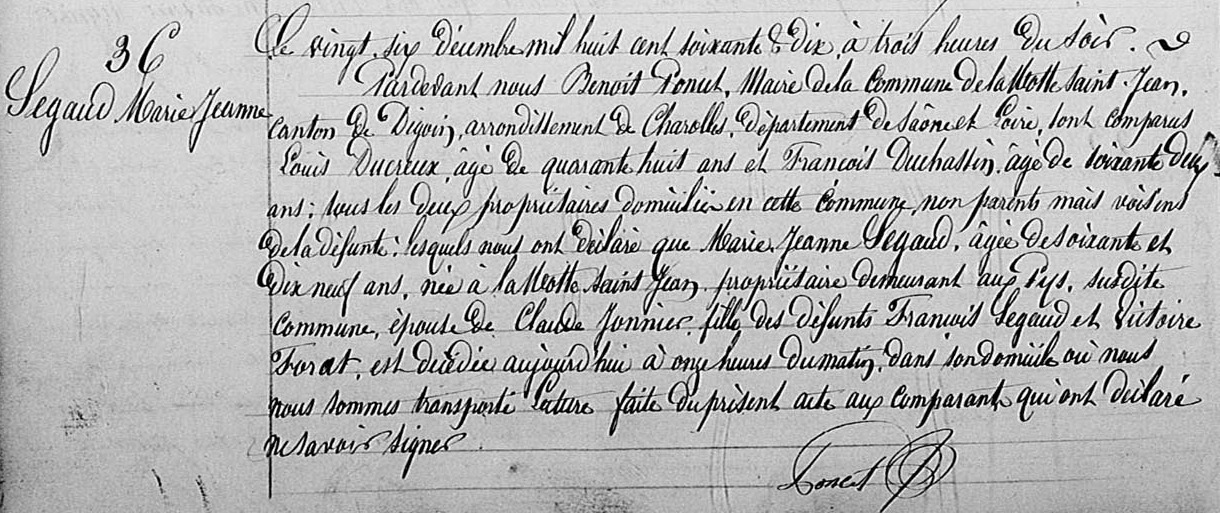 36
Segaud Marie Jeanne
Le vingt six décembre mil huit cent soixante & dix, à trois heures du soir.
Pardevant nous Benoit Poncet, Maire de la Commune de la Motte saint Jean,
Canton de Digoin, arrondissement de Charolles, département de Saône et Loire, sont comparus
Louis Ducreux, âgé de quarante huit ans et Francois Duchassin, âgé de soixante deux
ans; tous les deux propriétaires domiciliés en cette commune, non parents mais voisins
de la défunte; lesquels nous ont déclaré que Marie Jeanne Segaud, âgée de soixante et
dix neuf ans, née à la Motte saint Jean, propriétaire demeurant aux Pys, susdite
Commune, épouse de Claude Jonnier, fille des défunts Francois Segaud et Victoire
Forat, est décédée aujourd'hui à onze heures du matin, dans son domicile où nous
nous sommes transporté Lecture faite du présent acte aux comparants qui ont déclaré
ne savoir signer.
Poncet